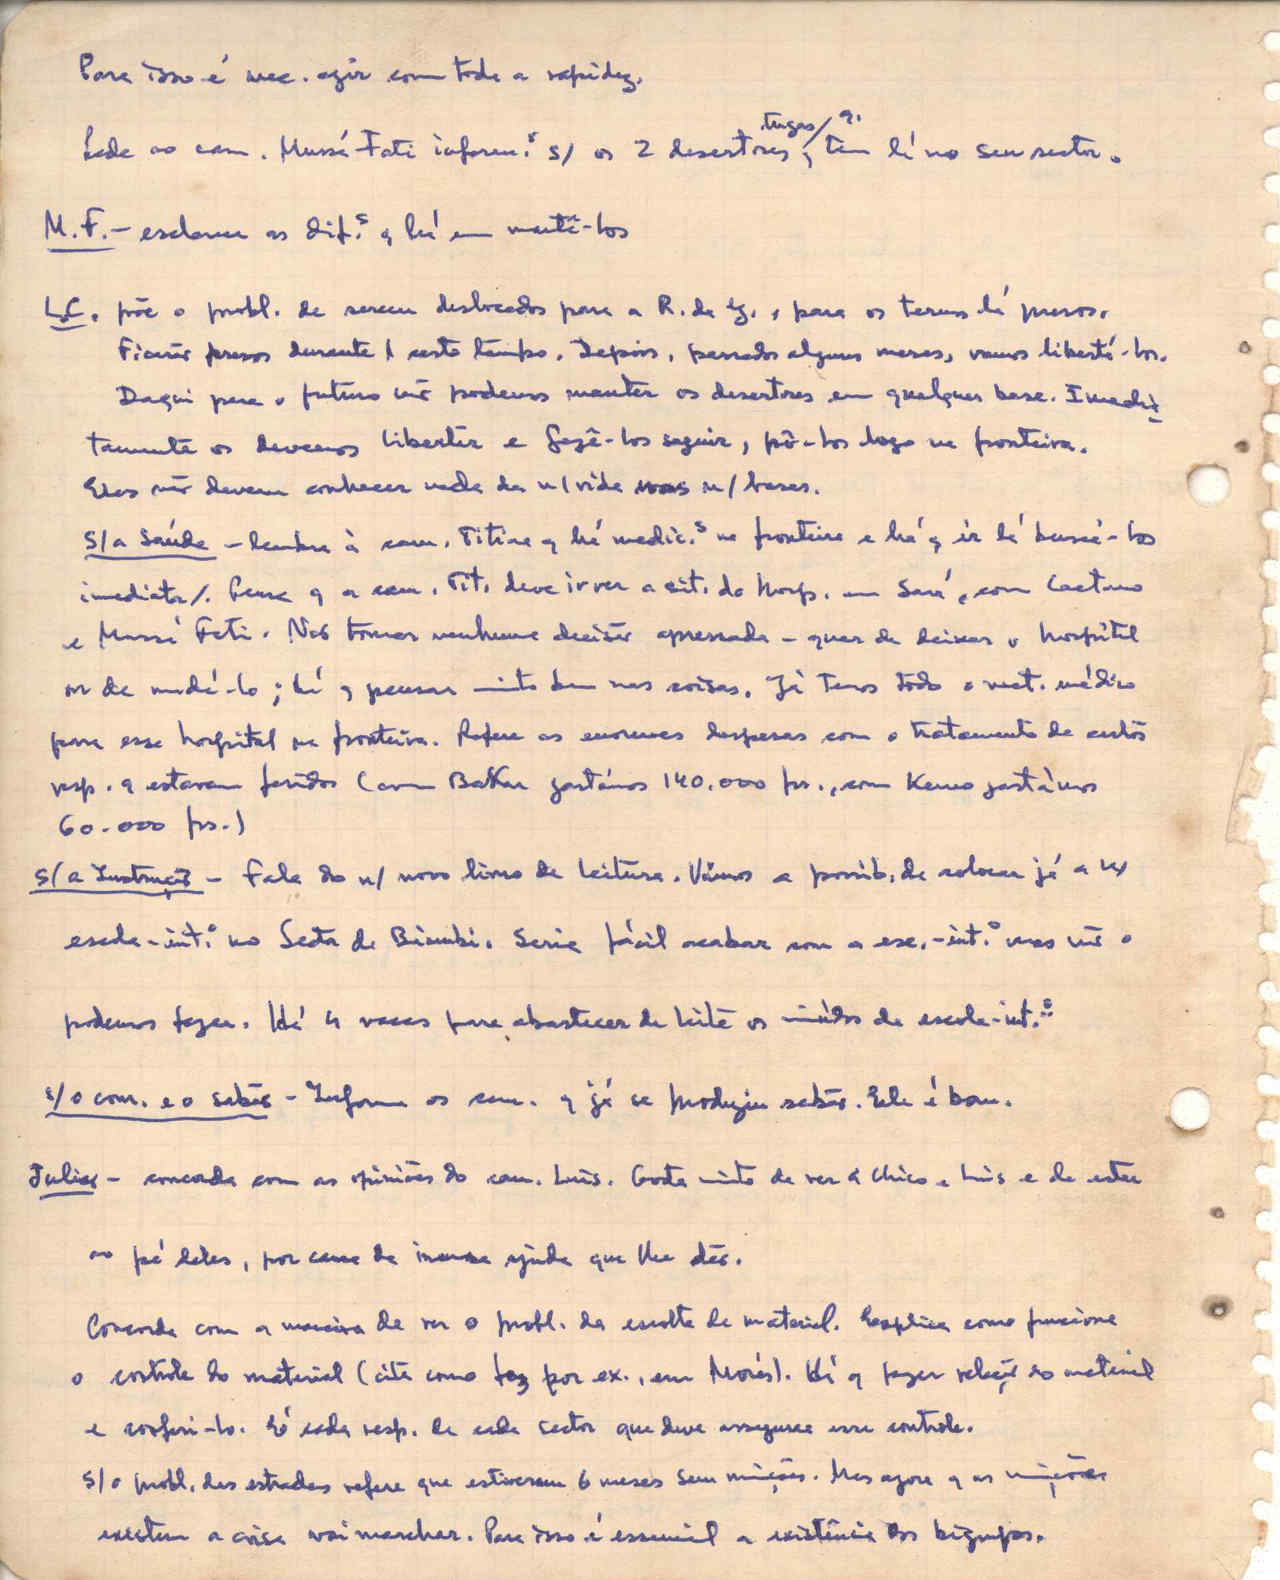 Para isso é nec. agir com toda a rapidez.
tugas/ q.
Pede ao cam. Mussá Fati inform.s s/ os 2 desertores, tem lá no seu sector.
M.F. - esclarece as dif.s q há em mantê-los
L.C. põe o probl. de serem deslocados para a R. da G., para os termos lá presos.
Ficarão presos durante 1 certo tempo. Depois, passados alguns meses, vamos libertá-los.
Daqui para o futuro não podemos manter os desertores em qualquer base. Imedia-
tamente os devemos libertar e fazê-los seguir, pô-los logo na fronteira.
Eles não devem conhecer nada da n/ vida nas n/ bases.
S/ a Saúde - lembra à cam. Titina q há medic.s na fronteira e há q ir lá buscá-los
imediata/. Pensa q a cam. Tit. deve ir ver a sit. do hosp. em Sará, com Caetano
e Mussá Fati. Não tomar nenhuma decisão apressada - quer de deixar o hospital
ou de mudá-lo; há q pensar muito bem nas coisas. Já temos todo o mat. médico
para esse hospital na fronteira. Refere as enormes despesas com o tratamento de certos
resp. q estavam feridos (com Bakar gastámos 140.000 frs., com Kemo gastámos
60.000 frs.)
S/ a Instrução - Fala do n/ novo livro de leitura. Vimos a possib. de colocar já a n/
escola-int.o no Sector de Biambi. Seria fácil acabar com a esc.-int.o mas não o
podemos fazer. Há 4 vacas para abastecer de leite os miúdos da escola-int.o
S/ o com. e o sabão - Informa os cam. q já se produziu sabão. Ele é bom.
Julião - concorda com as opiniões do cam. Luís. Gosta muito de ver o Chico e Luís e de estar
ao pé deles, por causa da imensa ajuda que lhe dão.
Concorda com a maneira de ver o probl. da escolta de material. Explica como funciona
o controle do material (cita como fez por ex., em Morés). Há q fazer relação do material
e conferi-lo. É cada resp. de cada sector que deve assegurar esse controle.
S/ o probl. das estradas refere que estiveram 6 meses sem munições. Mas agora q as munições
existem a coisa vai marchar. Para isso é essencial a existência dos bigrupos.